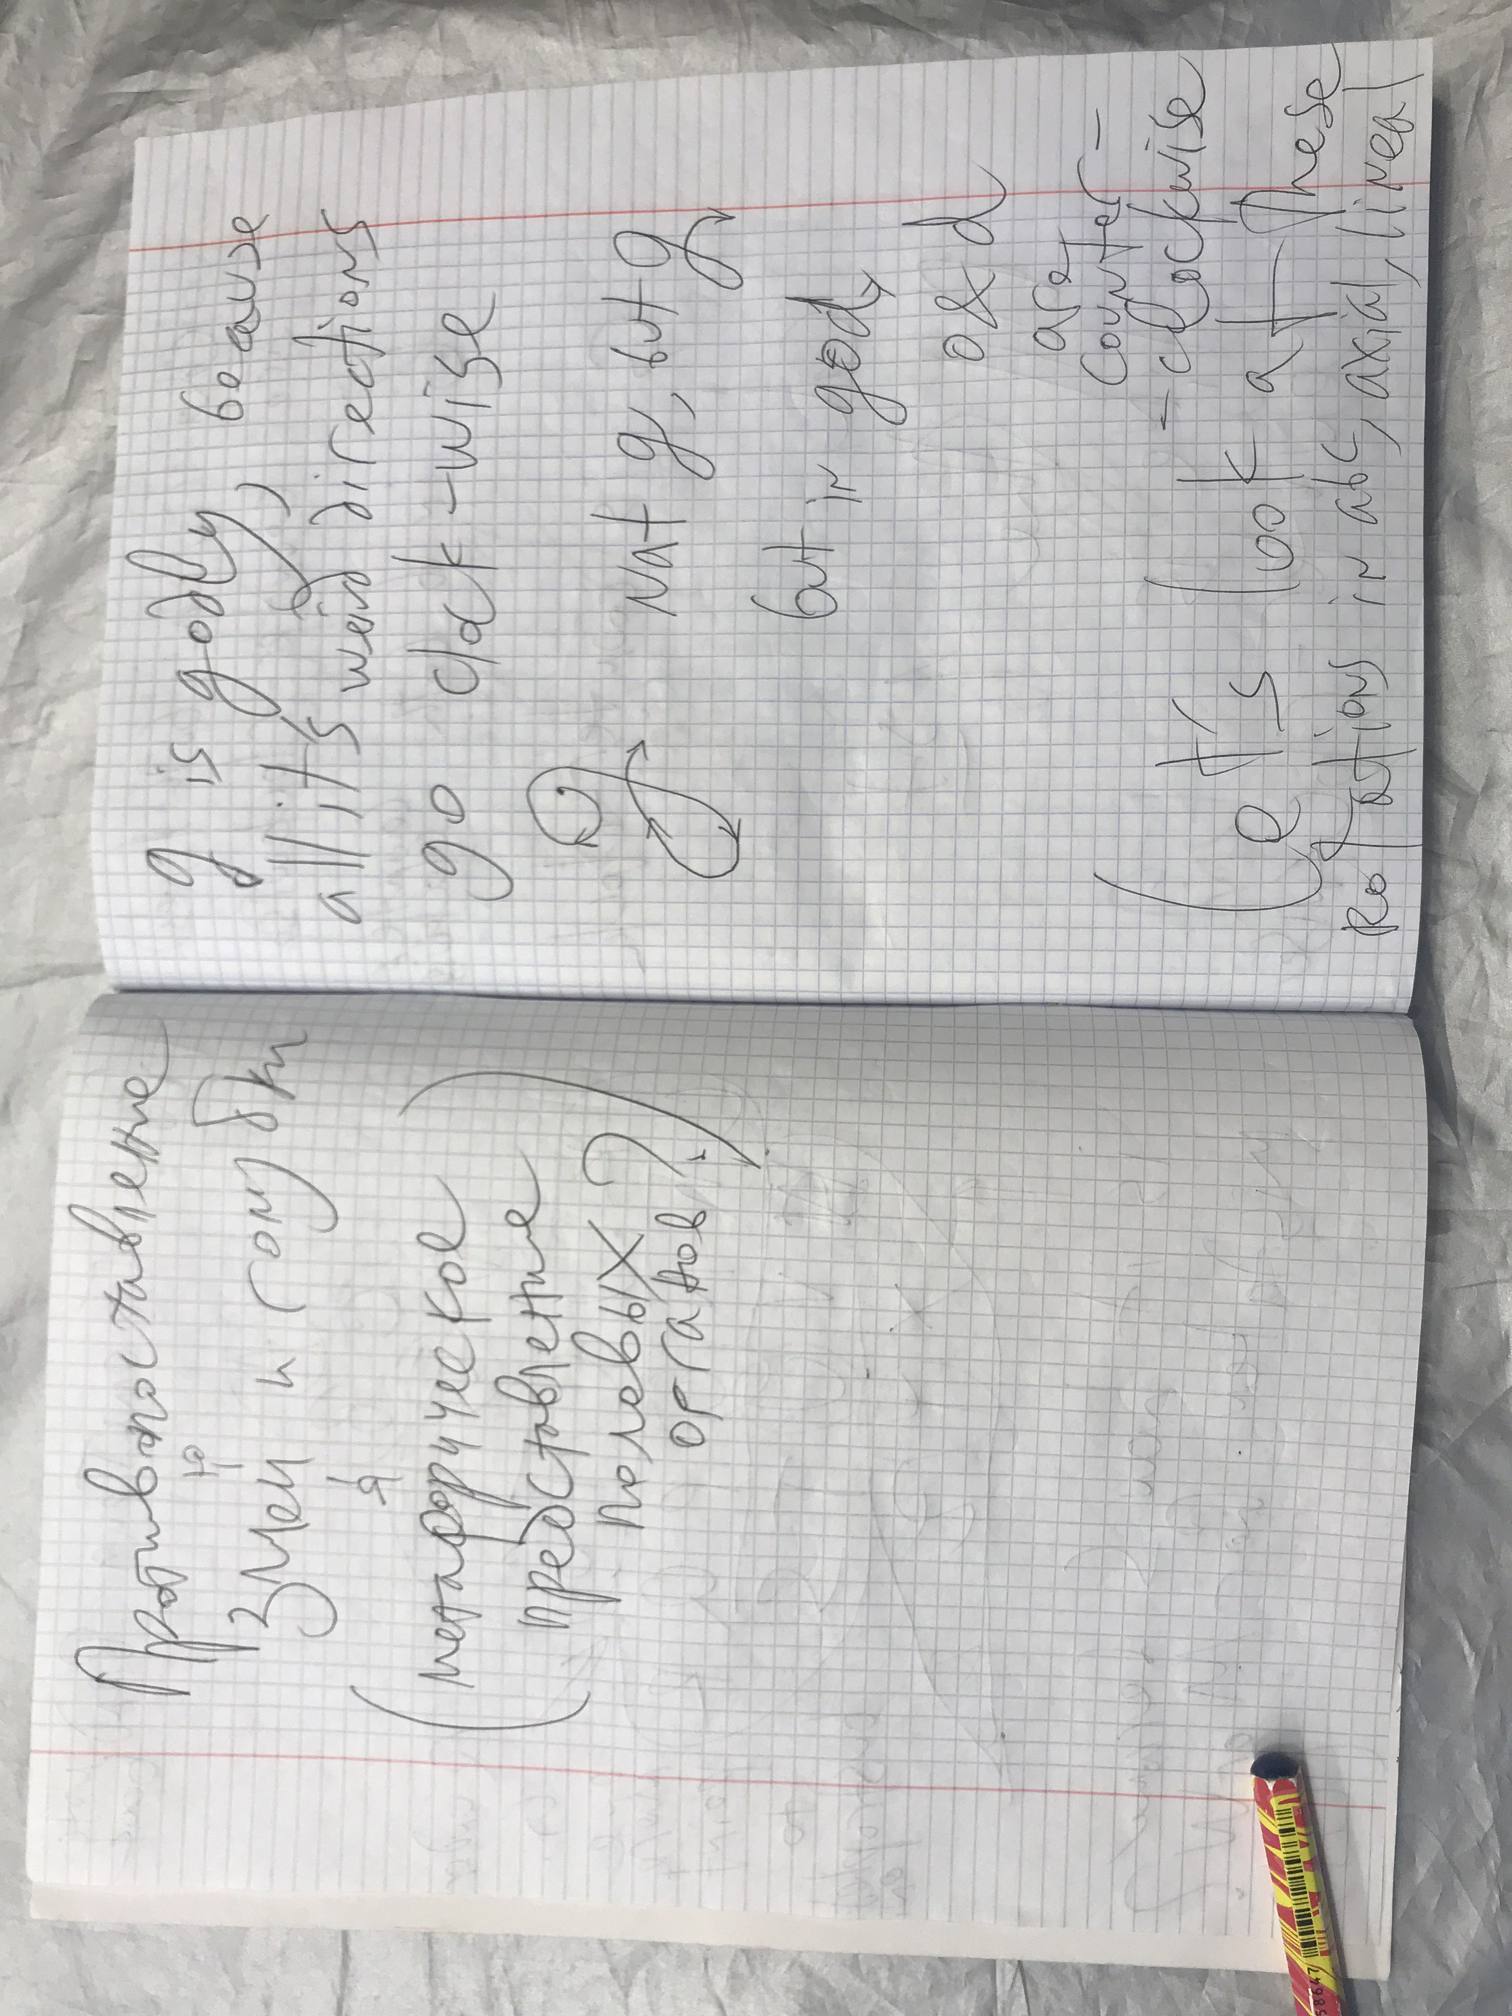 Противопоставление
ю
Змеи и голубки
я
(метафорическое
представление
половых
органов?)
g is godly, because
all it's weird directions
go clock-wise
Not g, but g
but in god,
o & d
are
counter-
-clockwise
Let's look at these
Rotations in abc, axial, lineal